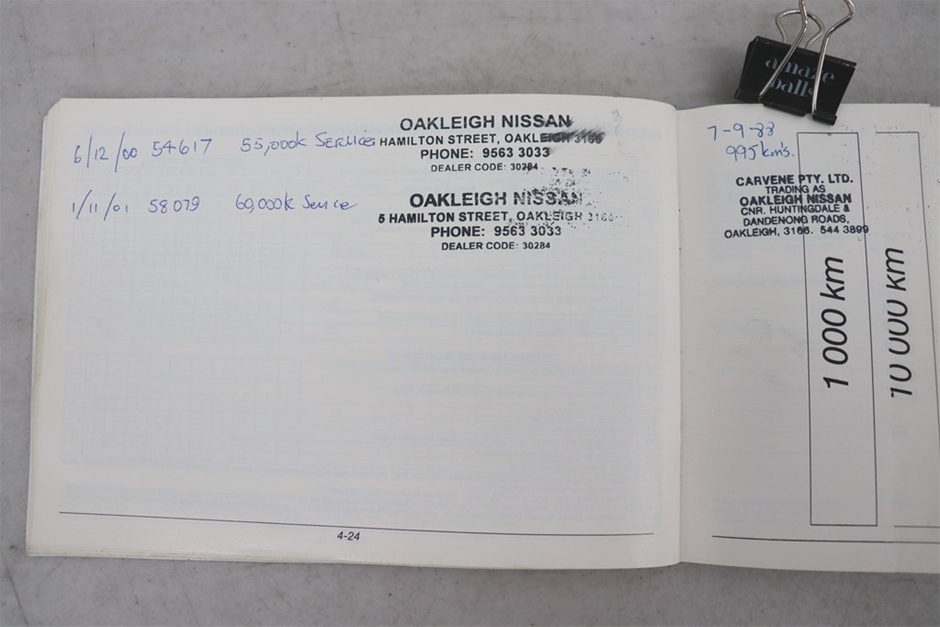 amaze
balls
6/12/00 54617 55,000k Service
OAKLEIGH NISSAN
HAMILTON STREET, OAKLEIGH 3166
PHONE: 9563 3033
DEALER CODE: 30284
1/11/01 58079 60,000k Service
OAKLEIGH NISSAN
5 HAMILTON STREET, OAKLEIGH 3166
PHONE: 9563 3033
DEALER CODE: 30284
4-24
7-9-88
995km's.
CARVENE PTY. LTD.
TRADING AS
OAKLEIGH NISSAN
CNR. HUNTINGDALE &
DANDENONG ROADS,
OAKLEIGH, 3166. 544 3899
1 000 km
10 000 km